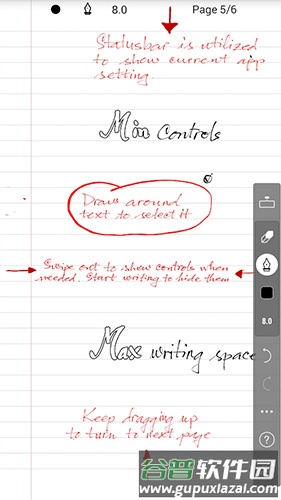 8.0 Page 5/6
Statusbar is utilized
to show current app
setting.
Min Controls
Draw around
text to select it
Swipe out to show controls when
needed. Start writing to hide them
8.0
Max writing space
Keep dragging up
to turn to next page
谷普软件园
www.gupuxiazai.com